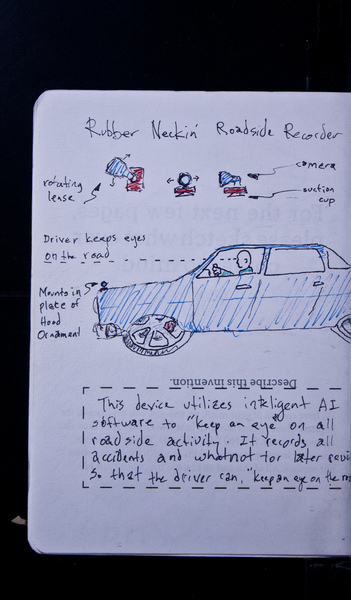 Rubber Neckin' Roadside Recorder
camera
rotating
lense
suction
cup
Driver keeps eyes
on the road
Mounts in
place of
Hood
Ornament
Describe this invention.
This device utilizes inteligent AI
software to "keep an eye" on all
roadside activity. It records all
accidents and whatnot for later
So that the driver can, "keep an eye on the